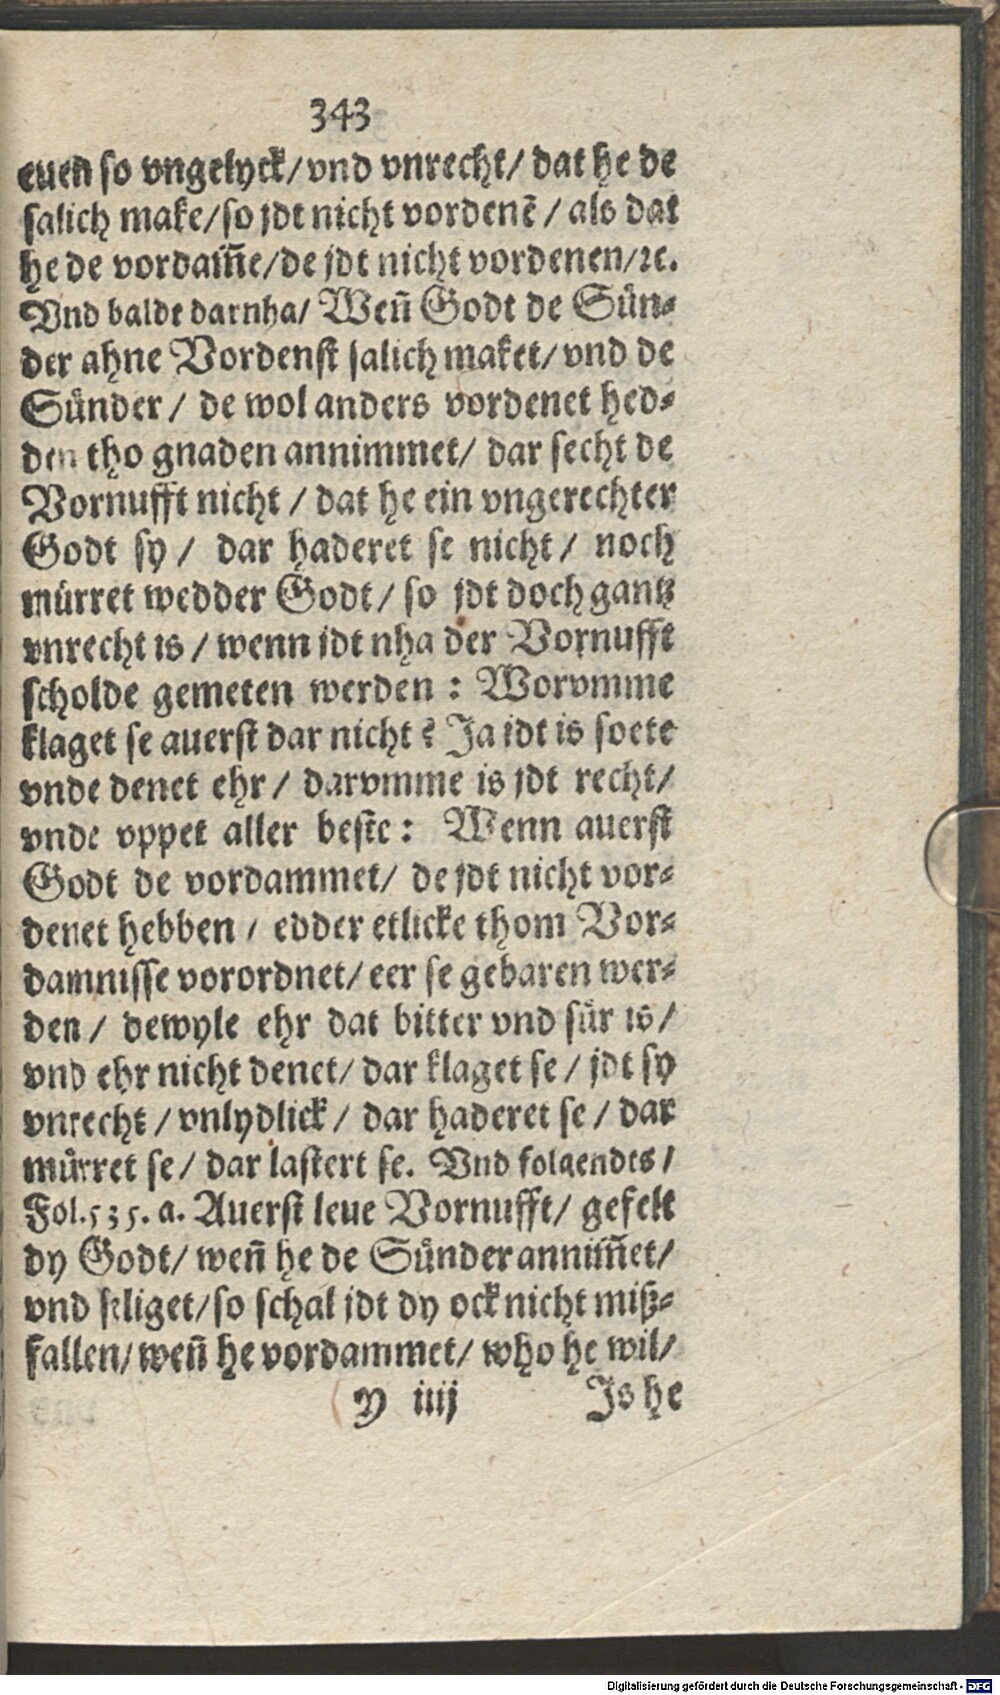 343
euen so vngelyck/vnd vnrecht/ dat he de
salich make/so jdt nicht vordenẽ / als dat
he de vordam̃e/de jdt nicht vordenen/ꝛc.
Vnd baldt darnha/ Wen̄ Godt de Sün-
der ahne Vordenst salich maket/ vnd de
Sünder / de wol anders vordenet hed-
den tho gnaden annimmet/ dar secht de
Vornufft nicht / dat he ein vngerechter
Godt sy / dar haderet se nicht/ noch
mürret wedder Godt/ so jdt doch gantz
vnrecht is / wenn idt nha der Vornufft
scholde gemeten werden : Worvmme
klaget se auerst dar nicht? Ja idt is soete
vnde denet ehr / darvmme is jdt recht/
vnde vppet aller beste: Wenn auerst
Godt de vordammet/ de jdt nicht vor-
denet hebben / edder etlicke thom Vor-
damnisse vorordnet/ eer se gebaren wer-
den / dewyle ehr dat bitter vnd sür is/
vnd ehr nicht denet/ dar klaget se / jdt sy
vnrecht / vnlydlick / dar haderet se / dar
mürret se/ dar lastert se. Vnd folgendts /
Fol.535. a. Auerst leue Vornufft/ gefelt
dy Godt/ wen̄ he de Sünder annim̃et/
vnd seliget/so schal idt dy ock nicht miß-
fallen/ wen̄ he vordammet/ who he wil/
y iiij Is he
Digitalisierung gefördert durch die Deutsche Forschungsgemeinschaft - DFG